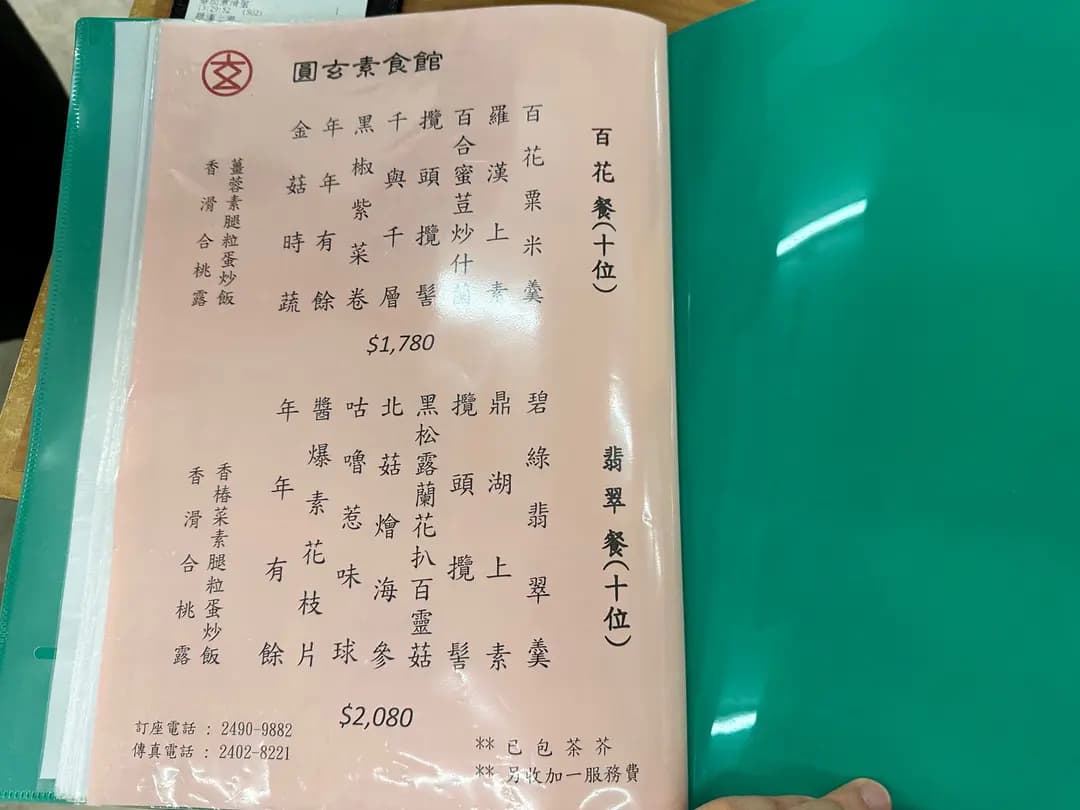 圓玄素食館
百花餐(十位)
百花粟米羹
羅漢上素
百合蜜荳炒什菌
攬頭攬髻
千與千層
黑椒紫菜卷
年年有餘
金菇時蔬
薑蓉素腿粒蛋炒飯
香滑合桃露
$1,780
翡翠餐(十位)
碧綠翡翠羹
鼎湖上素
攬頭攬髻
黑松露蘭花扒百靈菇
北菇燴海參
咕嚕惹味球
醬爆素花枝片
年年有餘
香椿菜素腿粒蛋炒飯
香滑合桃露
$2,080
訂座電話 : 2490-9882
傳真電話 : 2402-8221
** 已包茶芥
** 另收加一服務費